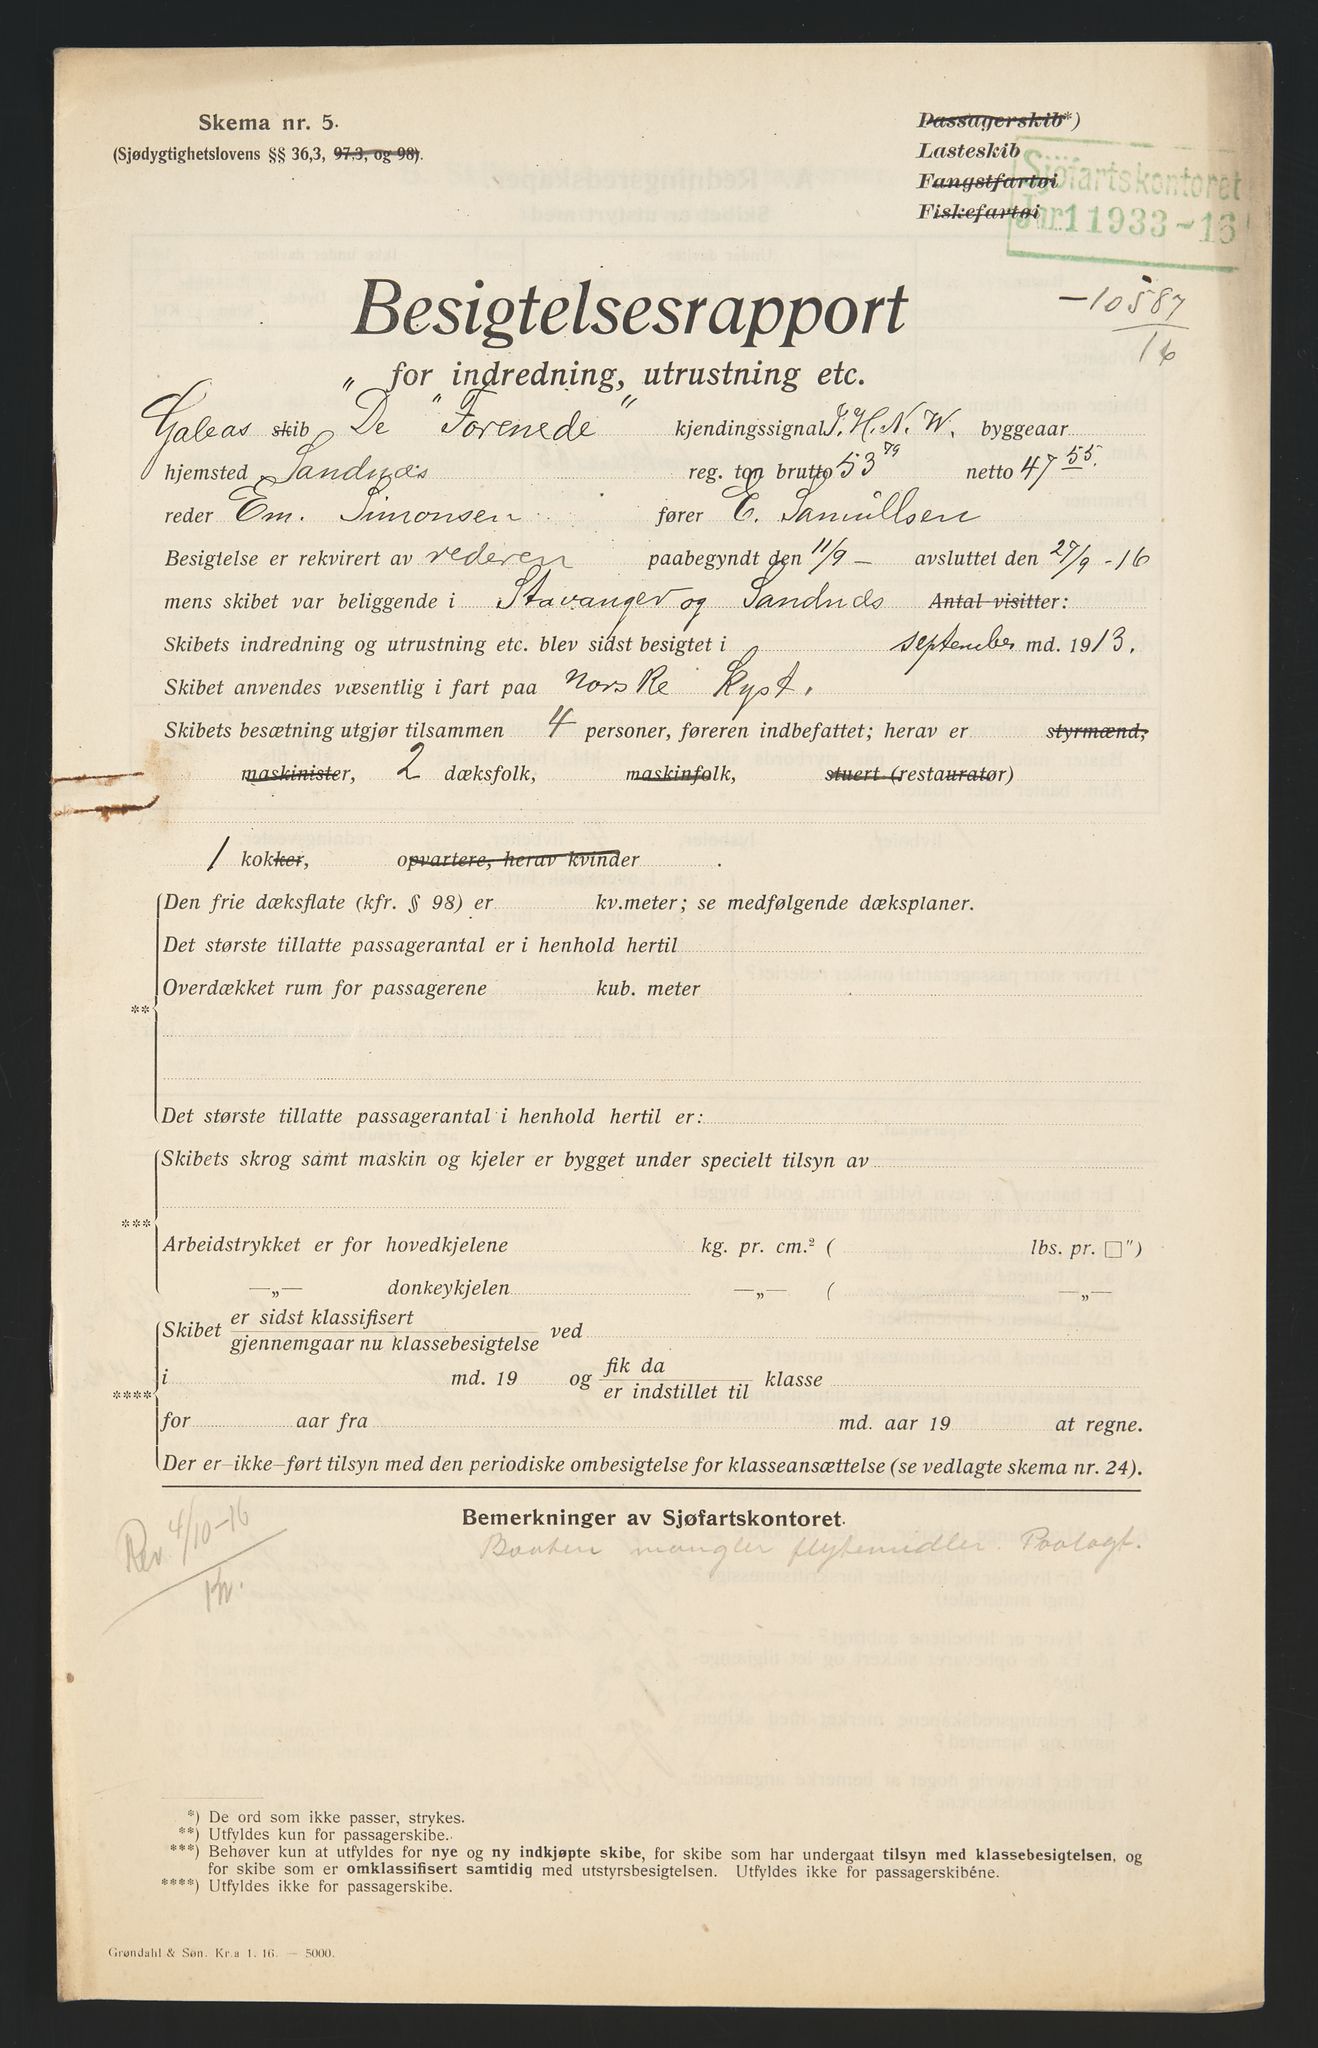 Skema nr. 5.
(Sjødygtighetslovens §§ 36,3, 97,3, og 98).
Passagerskib*)
Lasteskib
Fangstfartøi
Fiskefartøi
Sjöfartskontoret
Jnr. 11933-16
Besigtelsesrapport
-10587
16
for indredning, utrustning etc.
Galeas skib "De Forenede" kjendingssignal J.H.N.W. byggeaar
hjemsted Sandnæs reg. ton brutto 53 79 netto 47 55.
reder Em. Simonsen fører E. Samuelsen
Besigtelse er rekvirert av rederen paabegyndt den 11/9 — avsluttet den 27/9 -16
mens skibet var beliggende i Stavanger og Sandnæs Antal visitter:
Skibets indredning og utrustning etc. blev sidst besigtet i september md. 1913.
Skibet anvendes væsentlig i fart paa norske kyst.
Skibets besætning utgjør tilsammen 4 personer, føreren indbefattet; herav er styrmænd;
maskinister, 2 dæksfolk, maskinfolk, stuert (restauratør)
1 kokker, opvartere, herav kvinder .
Den frie dæksflate (kfr. § 98) er kv.meter; se medfølgende dæksplaner.
Det største tillatte passagerantal er i henhold hertil
Overdækket rum for passagerene kub. meter
**
Det største tillatte passagerantal i henhold hertil er:
Skibets skrog samt maskin og kjeler er bygget under specielt tilsyn av
***
Arbeidstrykket er for hovedkjelene kg. pr. cm.² ( lbs. pr. □")
—„— donkeykjelen —„— ( —„—
Skibet er sidst klassifisert
gjennemgaar nu klassebesigtelse ved
i md. 19 og fik da
er indstillet til klasse
****
for aar fra md. aar 19 at regne.
Der er-ikke-ført tilsyn med den periodiske ombesigtelse for klasseansættelse (se vedlagte skema nr. 24).
Bemerkninger av Sjøfartskontoret.
Rev. 4/10-16
Baaten mangler flytemidler. Paalagt.
*) De ord som ikke passer, strykes.
**) Utfyldes kun for passagerskibe.
***) Behøver kun at utfyldes for nye og ny indkjøpte skibe, for skibe som har undergaat tilsyn med klassebesigtelsen, og
for skibe som er omklassifisert samtidig med utstyrsbesigtelsen. Utfyldes ikke for passagerskibéne.
****) Utfyldes ikke for passagerskibe.
Grøndahl & Søn. Kr.a 1. 16. — 5000.